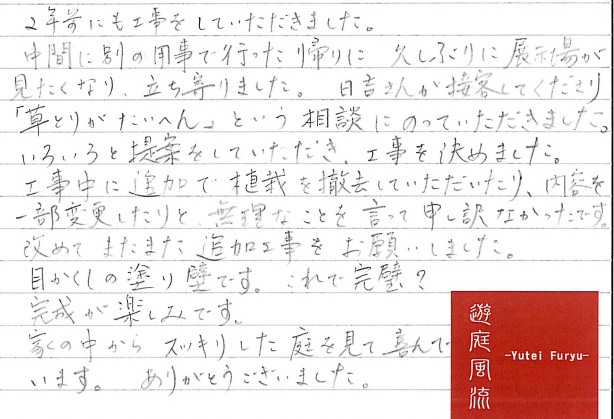 2年前にも工事をしていただきました。
中間に別の用事で行った帰りに 久しぶりに展示場が
見たくなり、立ち寄りました。 日吉さんが接客してくださり
「草とりがたいへん」という相談にのっていただきました。
いろいろと提案をしていただき、工事を決めました。
工事中に追加で植栽を撤去していただいたり、内容を
一部変更したりと、無理なことを言って申し訳なかったです。
改めてまたまた追加工事をお願いしました。
目かくしの塗り壁です。これで完璧？
完成が楽しみです。
家の中から スッキリした庭を見て喜んで
います。 ありがとうございました。
遊庭風流
-Yutei Furyu-